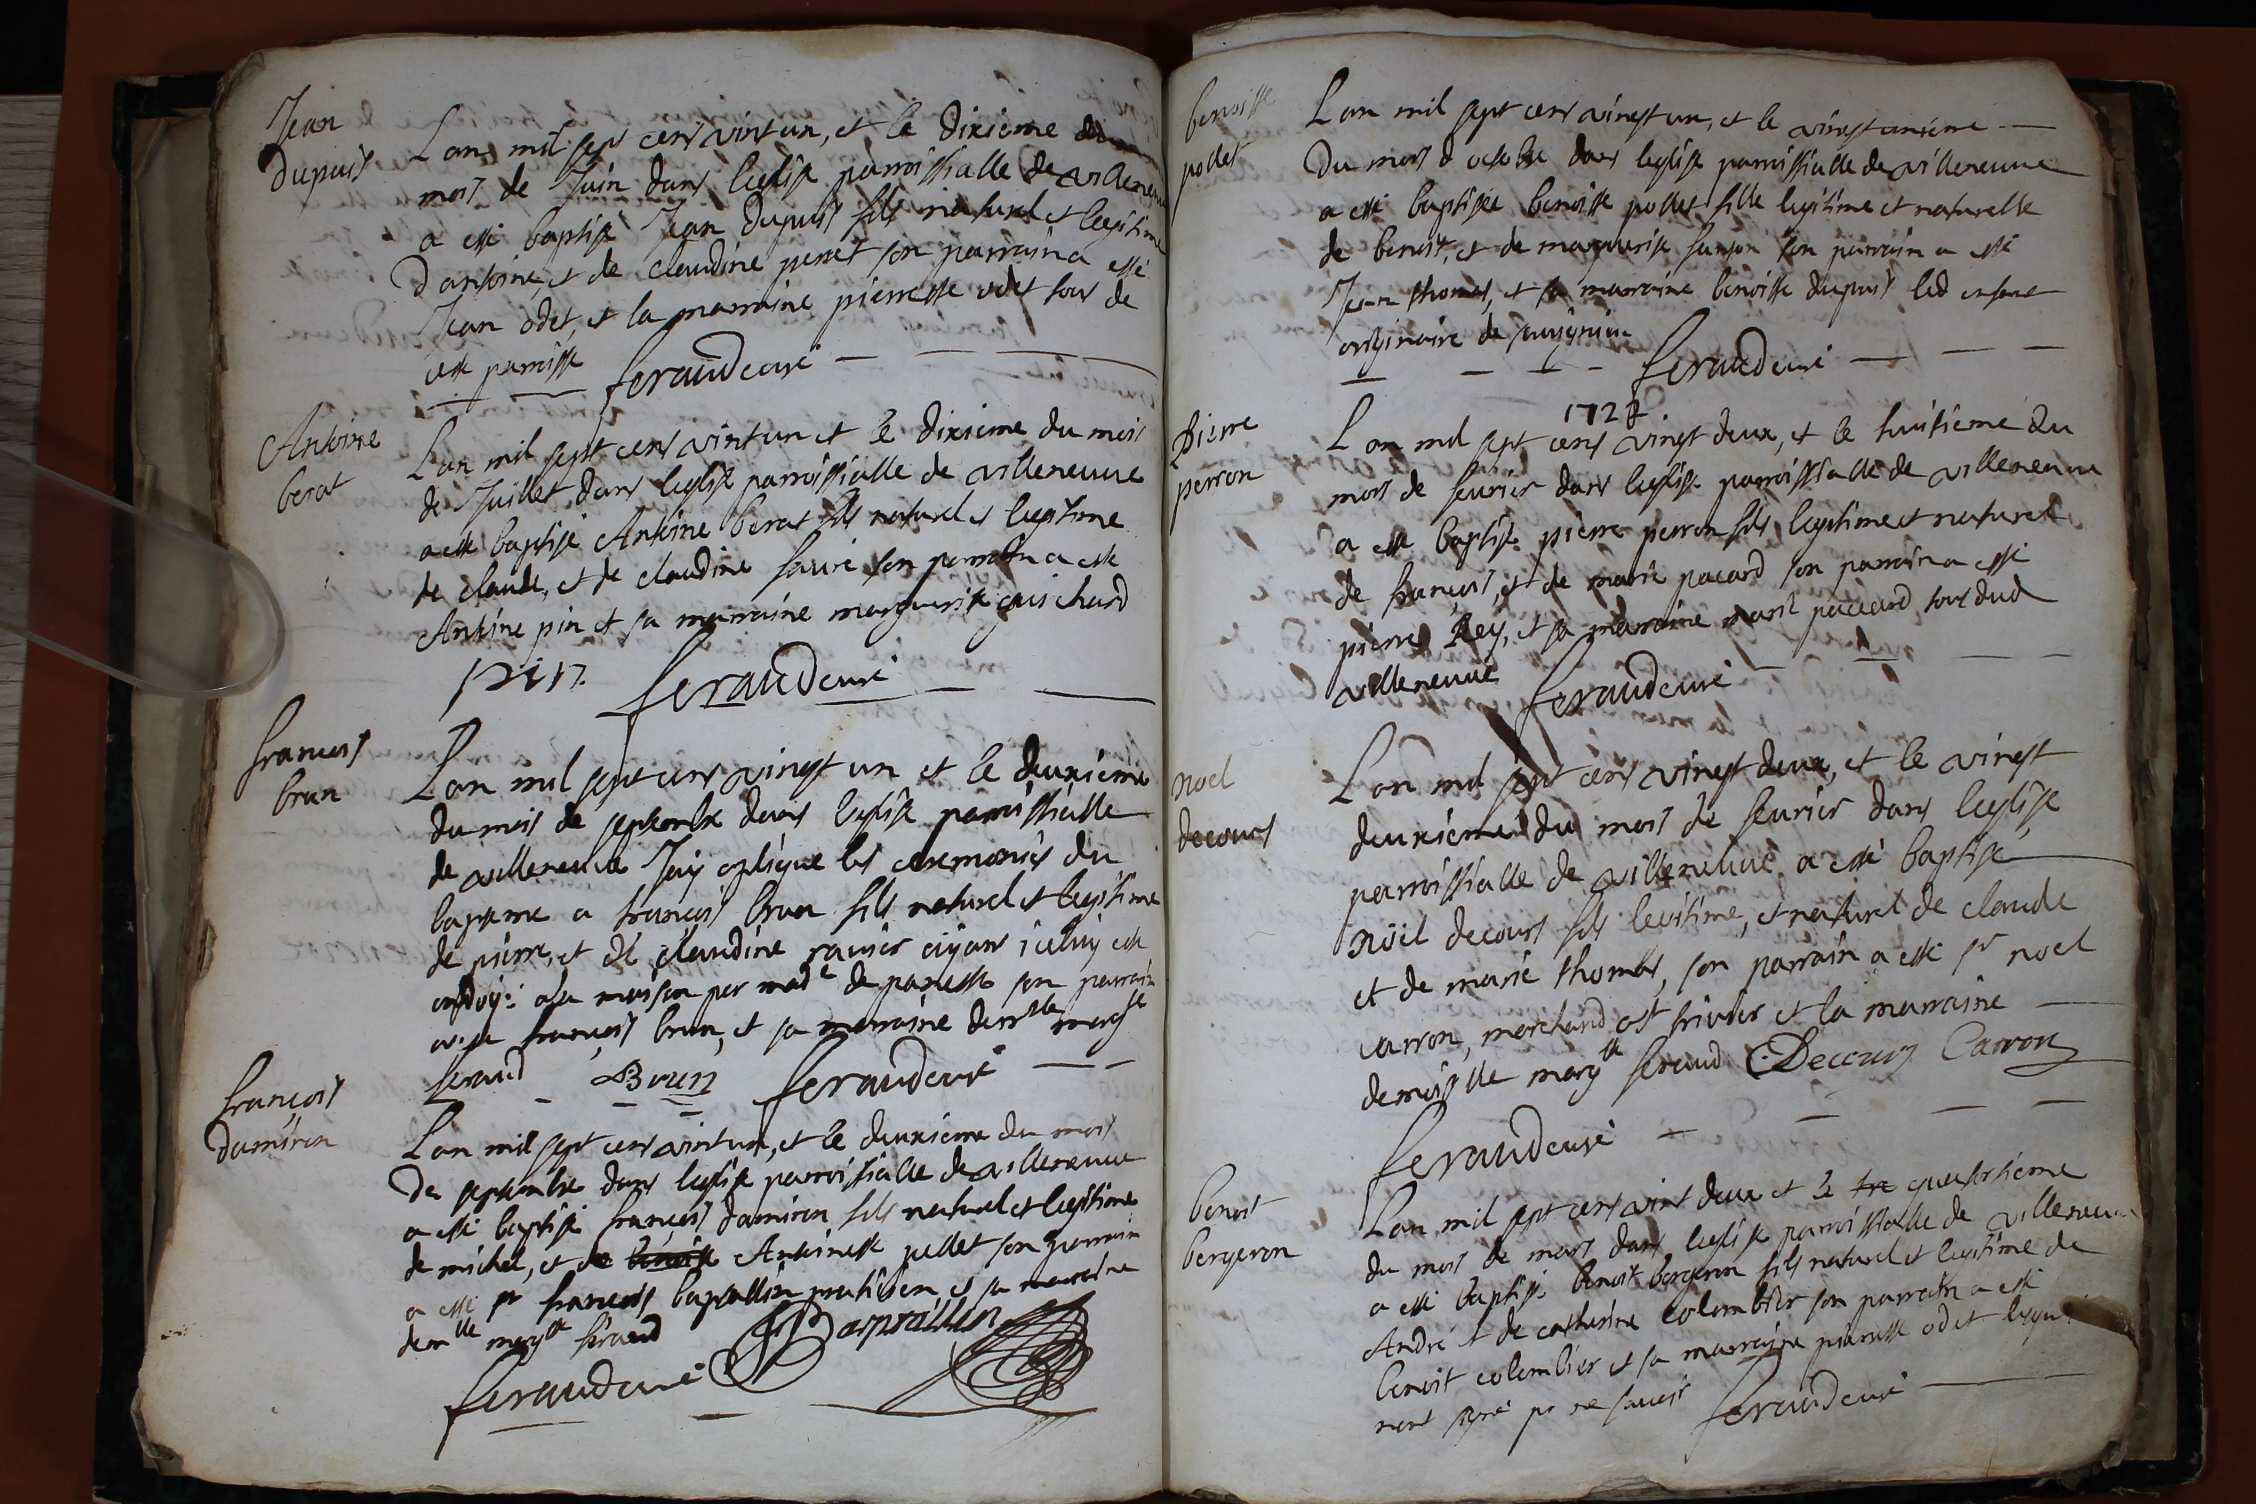 Jean
dupuis
Lan mil sept cens vint un, et le dixieme du
mois de Juin dans leglise parroissialle de villeneuve
a esté baptisé Jean dupuis fils naturel et legitime
dantoine, et de claudine perret son parrain a esté
Jean odet, et la marraine pierresse odet tous de
cette parroisse
feraud curé
Antoine
berat
Lan mil sept cens vint un et le dixieme du mois
de Juillet dans leglise parroissialle de villeneuve
a esté baptisé Antoine berat fils naturel et legitime
de claude, et de claudine favre son parrain a esté
Antoine pin et sa marraine marguerite guichard
pin feraud curé
francois
brun
Lan mil sept cens vingt un et le deuxieme
du mois de septembre dans leglise parroissialle
de villeneuve Jay apliqué les ceremonies du
bapteme a francois brun fils naturel et legitime
de pierre, et de claudine ravier aiyant iceluy esté
ondoyé a la maison par mad^e de son parrain
a esté francois brun, et sa marraine dem^lle marg^te
feraud Brun feraud curé
françois
damiron
Lan mil sept cens vint un, et le deuxieme du mois
de septembre dans leglise parroissialle de villeneuve
a esté baptisé francois damiron fils naturel et legitime
de michel, et de benoiste Antoinette pellet son parrain
a esté s^r francois baptallin praticien, et sa marraine
dem^lle marg^te feraud
feraud curé
benoiste
pollet
Lan mil sept cens vingt un, et le vingt unieme
du mois d octobre dans leglise parroissialle de villeneuve
a esté baptisée benoiste pollet fille legitime et naturelle
de benoist, et de marguerite son parrain a esté
Jean thomas, et sa marraine benoiste dupuis led enfant
originaire de savigneux
feraud curé
1722
pierre
perron
Lan mil sept cens vingt deux, et le huitieme du
mois de fevrier dans leglise parroissialle de villeneuve
a esté baptisé pierre perron fils legitime et naturel
de françois, et de marie pacard son parrain a esté
pierre Rey, et sa marraine marie paccard tous dud
villeneuve feraud curé
noel
decours
Lan mil sept cens vingt deux, et le vingt
deuxieme du mois de fevrier dans leglise
parroissialle de villeneuve a esté baptisé
noël decours fils legitime, et naturel de claude
et de marie thomas, son parrain a esté s^r noel
carron, marchand a st trivier et la marraine
demoiselle marg^te feraud Decours Carron
feraud curé
benoist
bergeron
Lan mil sept cens vint deux et le tre quatortieme
du mois de mars dans leglise parroissialle de villeneuve
a esté baptisé benoist bergeron fils naturel et legitime de
André et de catherine colombier son parrain a esté
benoist colombier et sa marraine pierresse odet lesquels
nont signé pr ne scavoir feraud curé